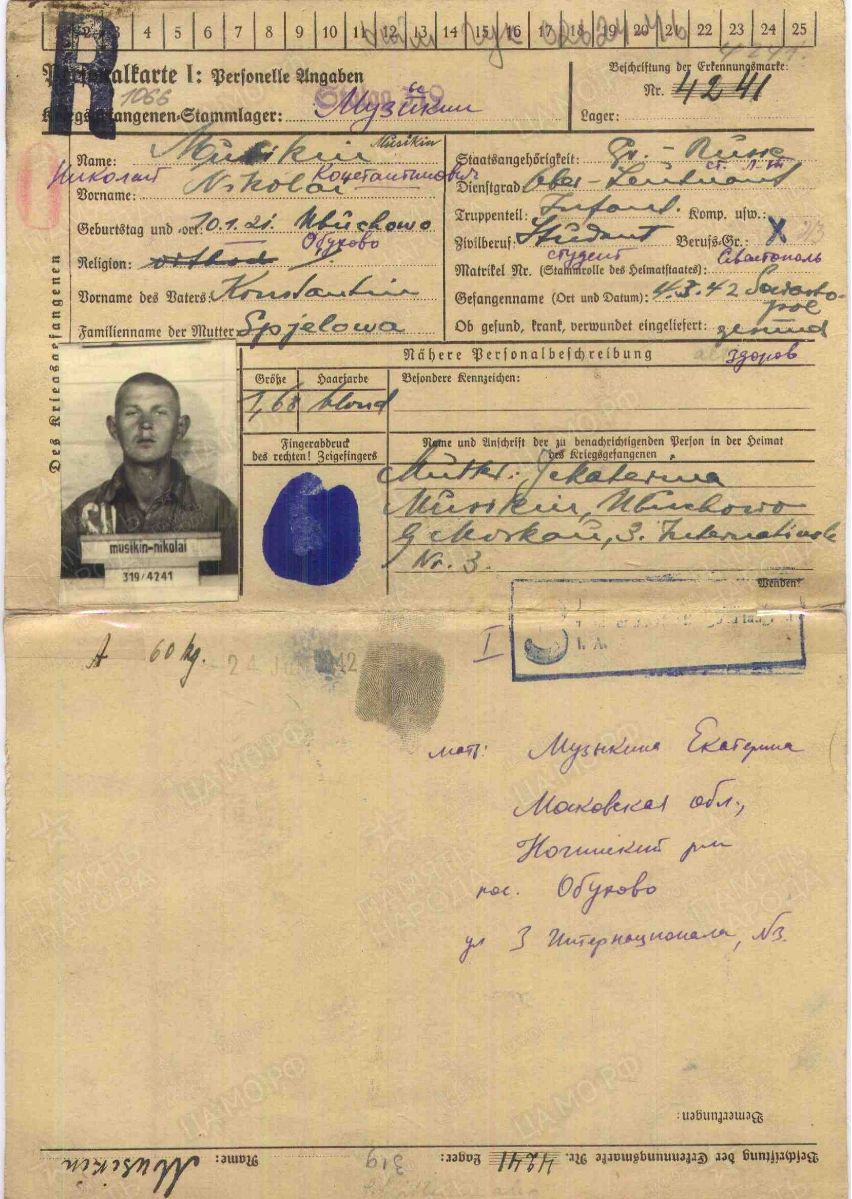 1 2 3 4 5 6 7 8 9 10 11 12 13 14 15 16 17 18 19 20 21 22 23 24 25
R
4241.
Personalkarte I: Personelle Angaben
Beschriftung der Erkennungsmarke:
1066
Nr. 4241
Kriegsgefangenen-Stammlager: Stalag 319
Музыкин
Lager:
Des Kriegsgefangenen
Name: Musikin Musikin
Николай Константинович
Vorname: Nikolai
Geburtstag und -ort: 10.1.21. Ubuchowo
Обухово
Religion: orthod
Vorname des Vaters: Konstantin
Familienname der Mutter: Spjelowa
Staatsangehörigkeit: Gr.-Russe
ст. л-т
Dienstgrad: Ober-Leutnant
Truppenteil: Infant. Komp. usw.:
Zivilberuf: Student Berufs-Gr.: X
студент
Севастополь
Matrikel Nr. (Stammrolle des Heimatstaates):
Gefangenname (Ort und Datum): 42 Sewastopol
Ob gesund, krank, verwundet eingeliefert: gesund
здоров
Nähere Personalbeschreibung
Größe Haarfarbe Besondere Kennzeichen:
1,68 blond
Fingerabdruck
des rechten! Zeigefingers
Name und Anschrift der zu benachrichtigenden Person in der Heimat
des Kriegsgefangenen
Mutter: Jekaterina
Musikin, Ubuchowo
G. Moskau, 3. Internationale
Nr. 3.
SU
musikin-nikolai
319/4241
Wenden!
A 60 kg.
24 1942
I
I. A.
мать: Музыкина Екатерина
Московская обл.,
Ногинский р-н
пос. Обухово
ул 3 Интернационала, №3.
Bemerkungen:
Beschriftung der Erkennungsmarke Nr. 4241 Lager: 319 Name: Musikin
ЦАМО.РФ
ПАМЯТЬ
НАРОДА